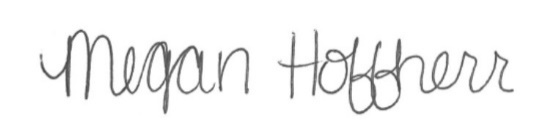 Megan Hoffherr